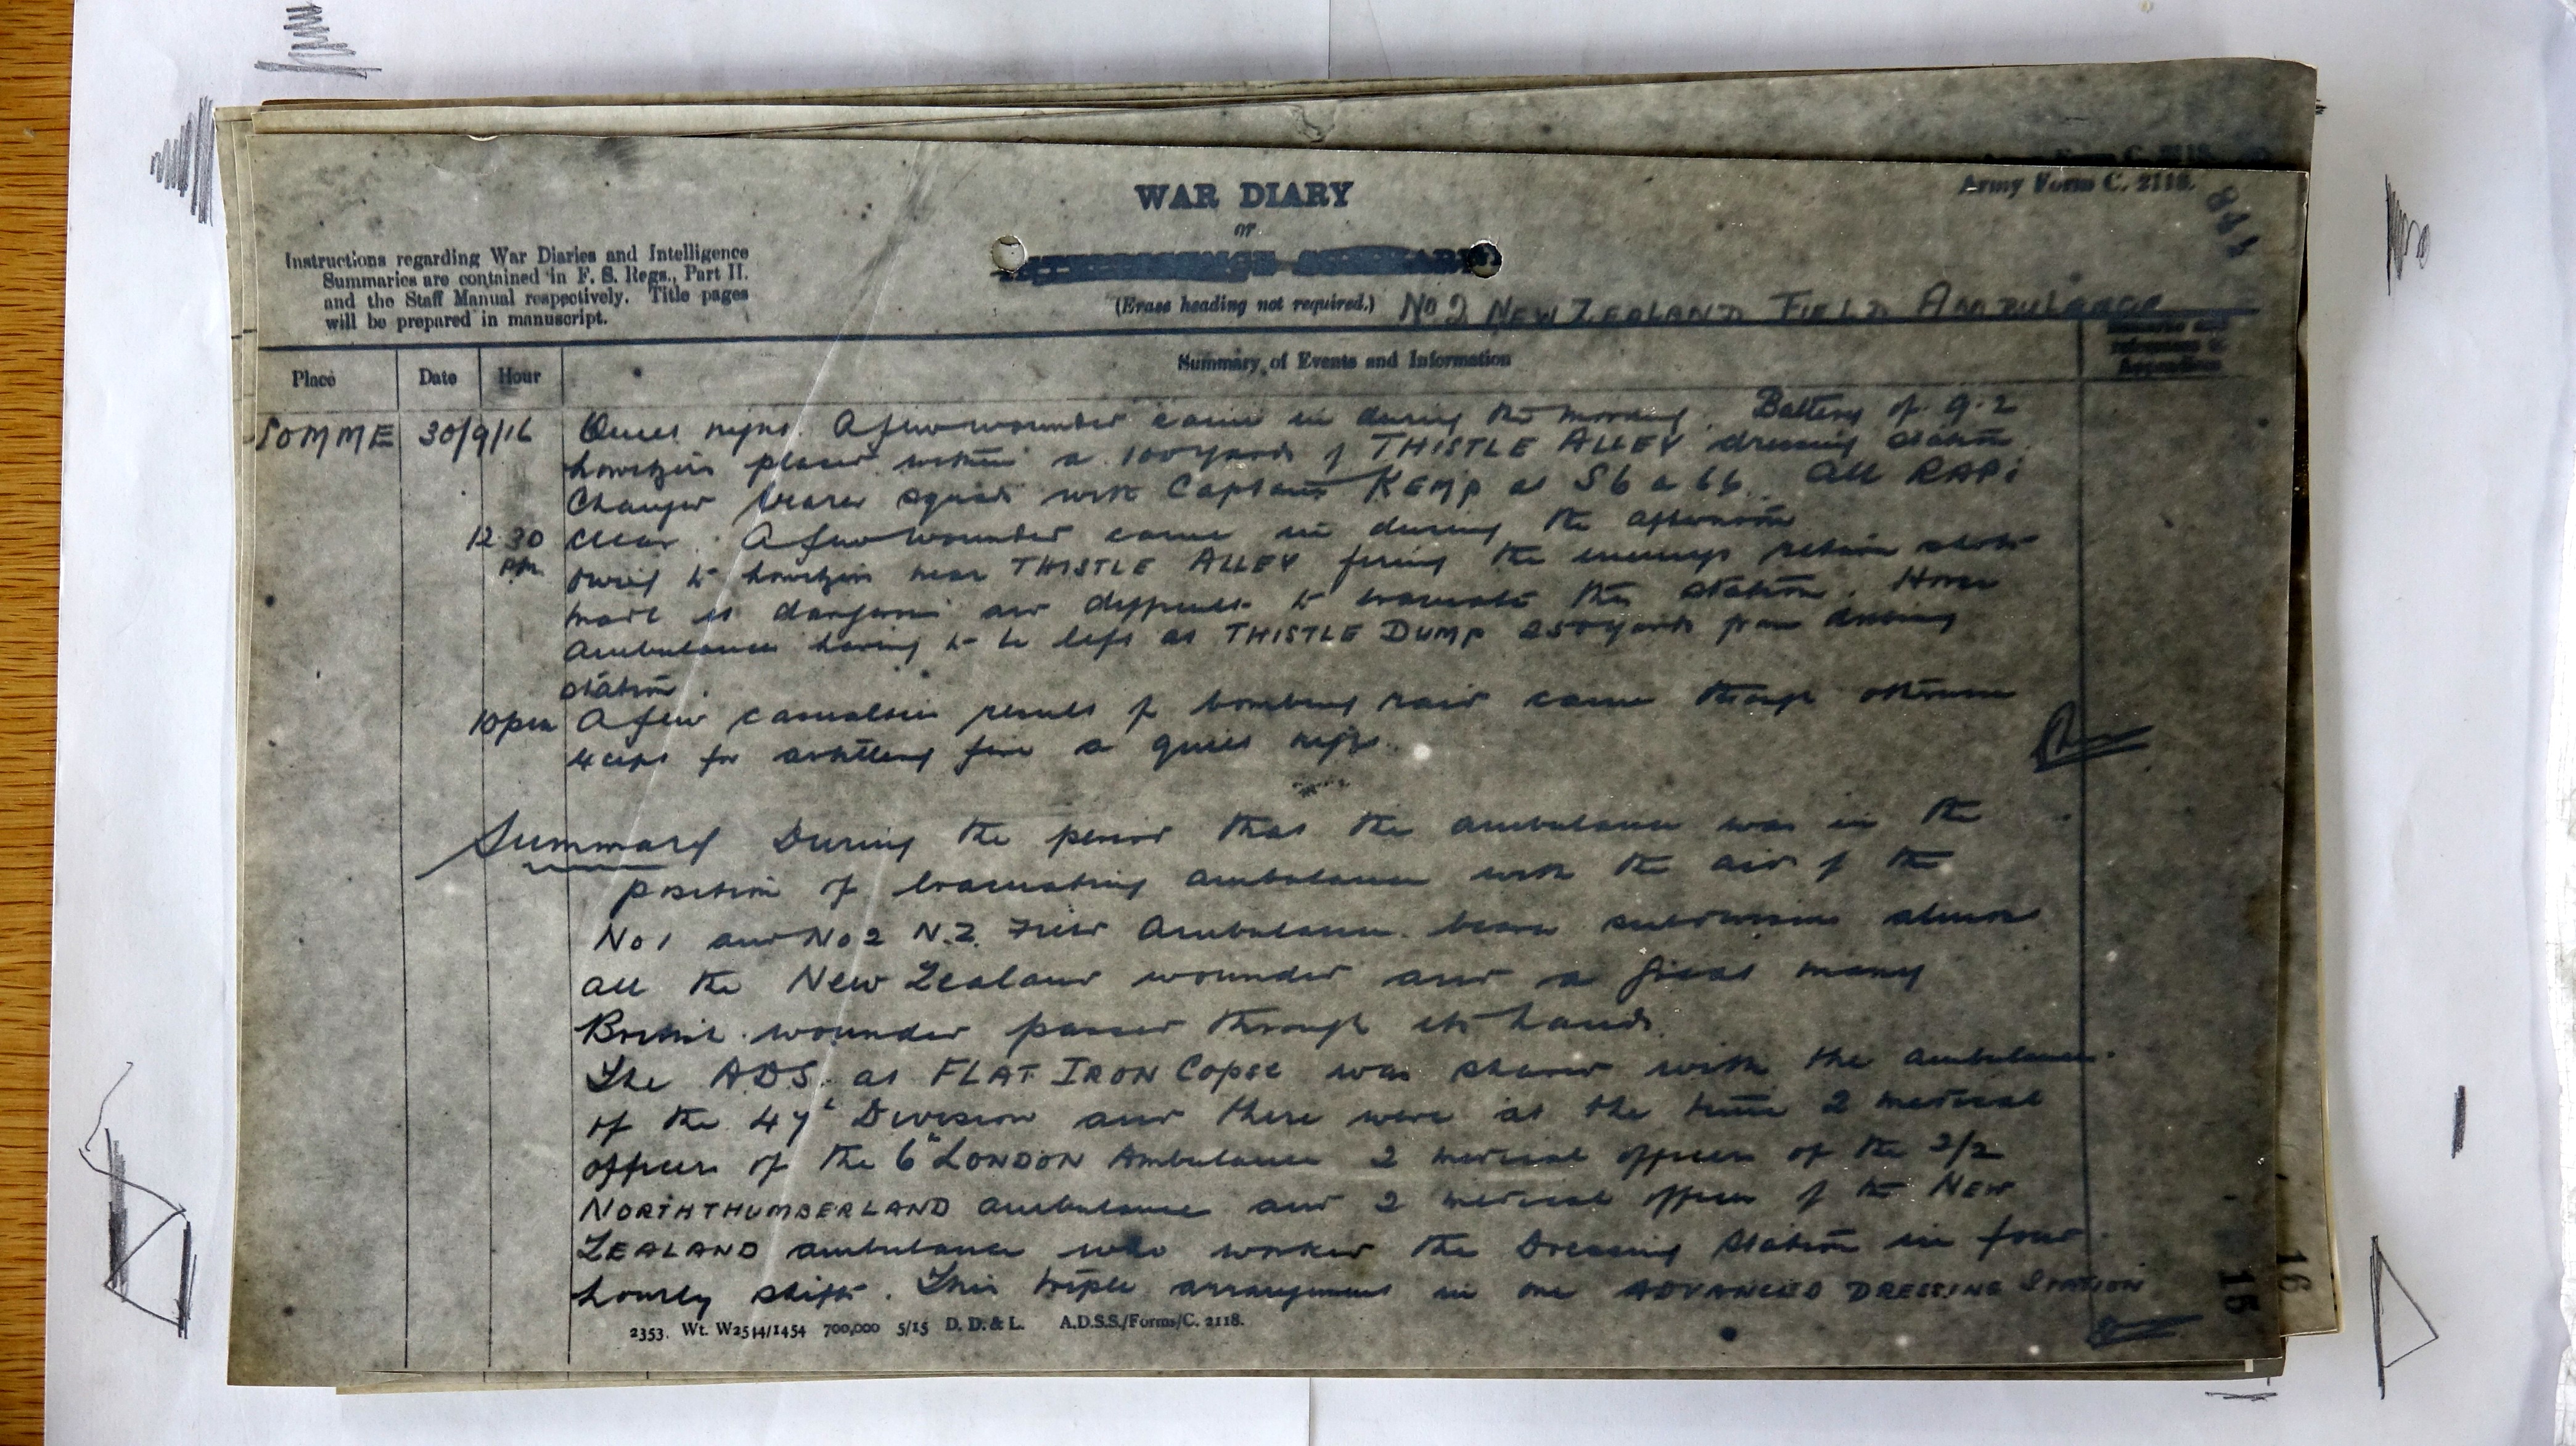 Army Form C. 2118.
WAR DIARY
or
INTELLIGENCE SUMMARY
(Erase heading not required.) No 2 NEW ZEALAND FIELD AMBULANCE
Instructions regarding War Diaries and Intelligence
Summaries are contained in F. S. Regs., Part II.
and the Staff Manual respectively. Title pages
will be prepared in manuscript.
Place Date Hour Summary of Events and Information Remarks and references to Appendices
SOMME 30/9/16 Quiet night. A few wounded came in during the morning. Battery of 9.2
howitzers placed within a 100 yards of THISTLE ALLEY dressing station.
Changed bearer squads with Captain KEMP at S6 a 66. All RAPs
12.30 clear. A few wounded came in during the afternoon
pm owing to howitzers near THISTLE ALLEY firing the enemys return shots
made it dangerous and difficult to evacuate the station. Horse
Ambulances having to be left at THISTLE DUMP 250 yards from dressing
station.
10 pm A few casualties result of bombing raid came through otherwise
except for artillery fire a quiet night.
Summary During the period that the ambulance was in the
position of evacuating ambulance with the aid of the
No 1 and No 2 N.Z. Field Ambulance bearer subdivisions almost
all the New Zealand wounded and a great many
British wounded passed through its hands.
The ADS. at FLAT IRON Copse was shared with the ambulances
of the 47t Division and there were at the time 2 medical
officers of the 6th LONDON Ambulance 2 medical officers of the 2/2
NORTHTHUMBERLAND ambulance and 2 medical officers of the NEW
ZEALAND ambulance who worked the Dressing Station in four
hourly shifts. This triple arrangement in one ADVANCED DRESSING STATION
2353. Wt. W2514/1454 700,000 5/15 D. D. & L. A.D.S.S./Forms/C. 2118.
15
16